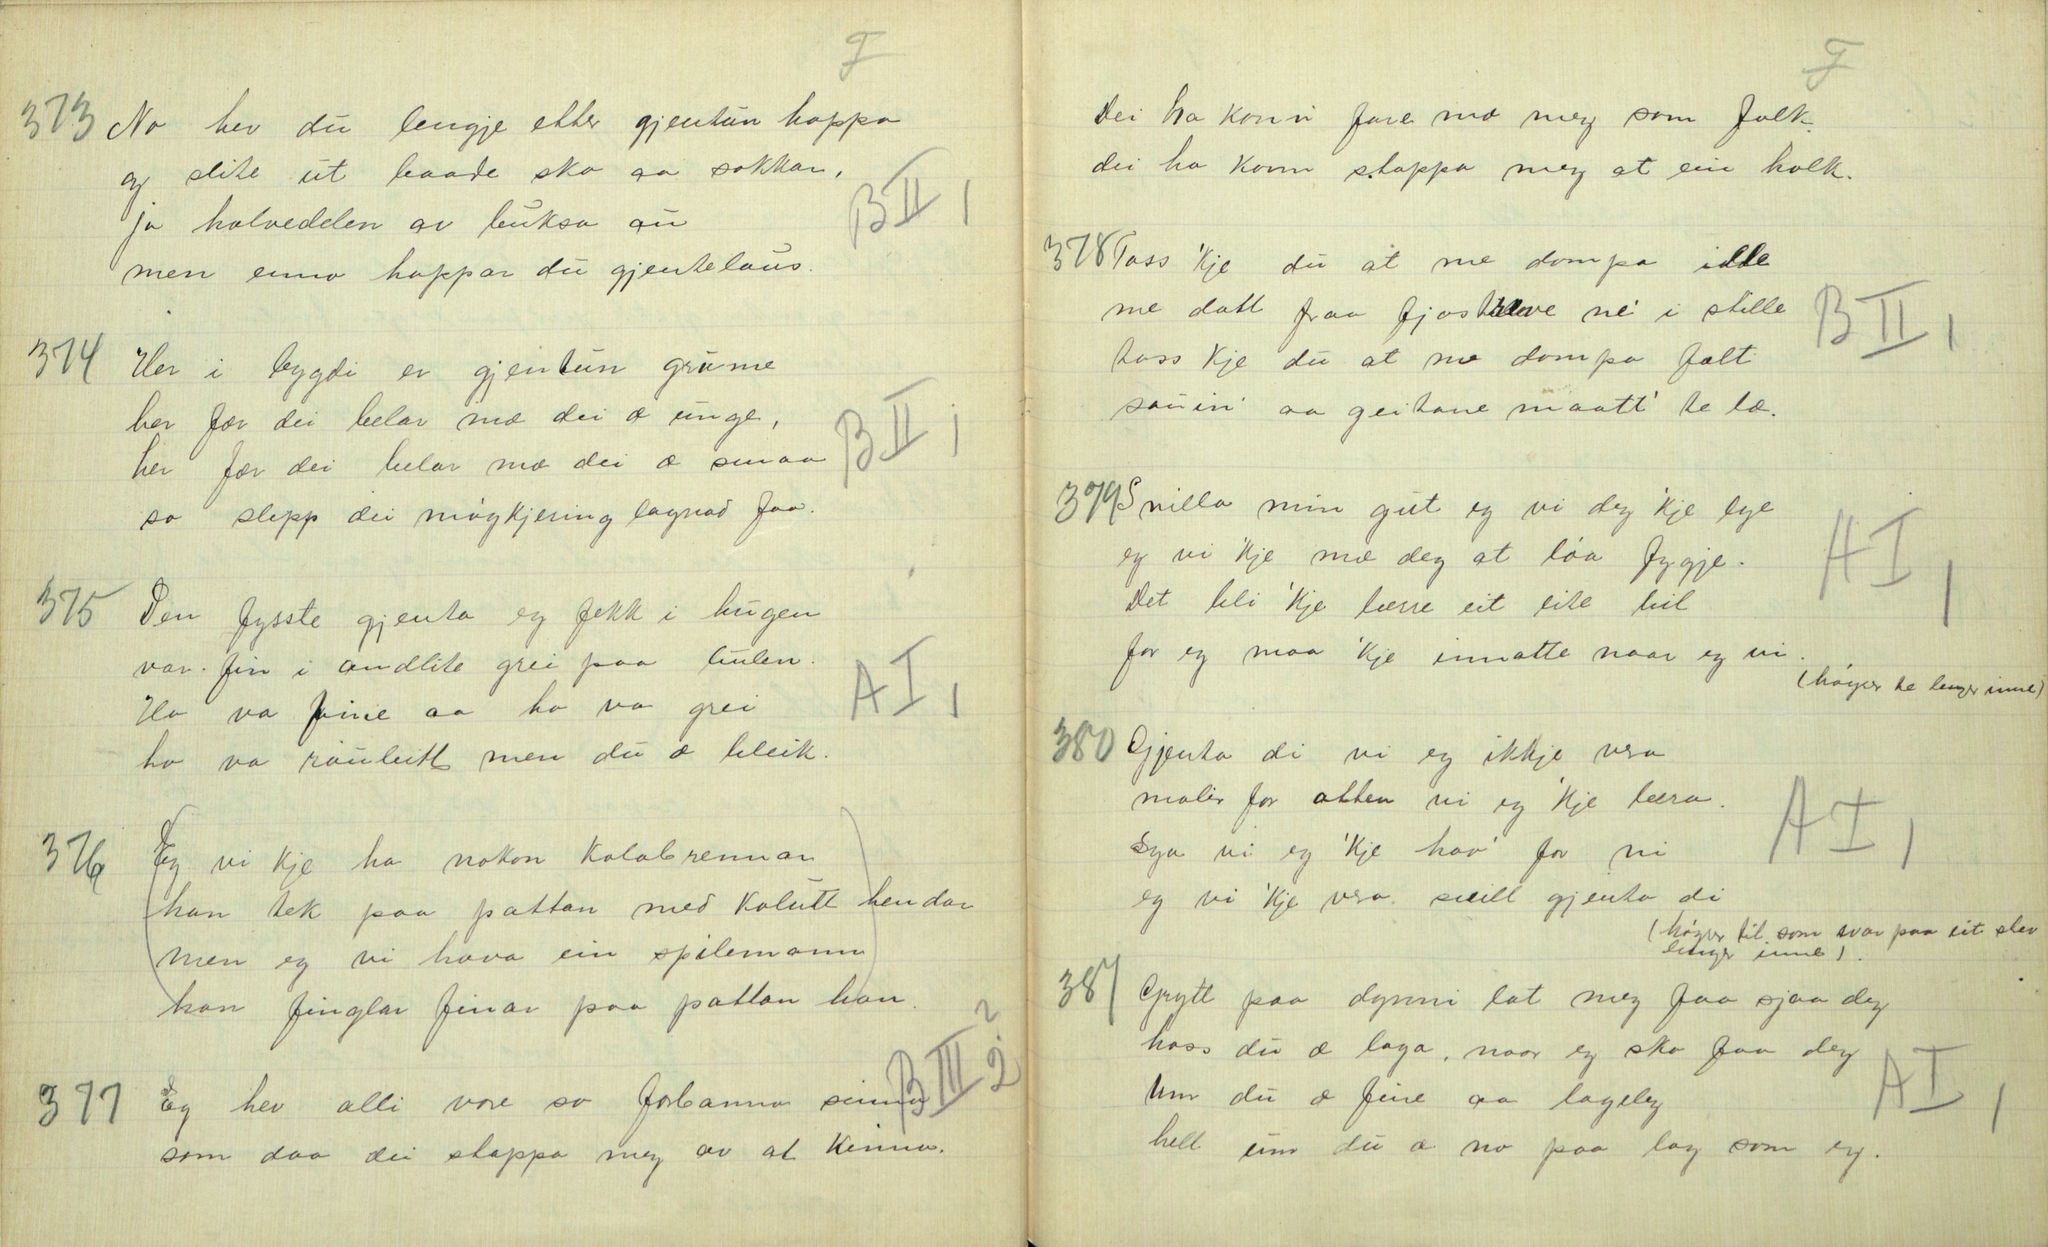 F
373 No hev du lengje etter gjentun hoppa
og slite ut baade sko aa sokkar,
ja halvedelen av buksa au
men enno hoppar du gjentelaus.
B II 1
374 Her i bygdi er gjentun grume
her fær dei belar mæ dei æ unge,
her fær dei belar mæ dei æ smaa
so slepp dei møykjering lagnad faa.
B II 1
375 Den fysste gjenta eg fekk i hugen
var fin i andlite grei paa
Ho va fine aa ho va grei
ho va rauleitt men du æ bleik.
A I 1
376 Eg vi kje ha nokon kolabrennar
han tek paa pattan med kolutt hendar
men eg vi hava ein spilemann
han finglar finar paa pattan han.
377 Eg hev alli vore so forbanna sinna
som daa dei stappa meg av at kinna.
B III 2 ?
F
Dei ha konn' fare mæ meg som folk
dei ha konn stappa meg at ein holk.
378 Tass 'kje du at me dompa ille
me datt fraa fjostreve ne' i stille
tass kje du at me dompa fælt
sauin' aa geitane maatt' te læ.
B II 1
379 Snilla min gut eg vi deg 'kje lye
eg vi 'kje mæ deg at løa fygje.
Det bli 'kje bærre eit lite bil
for eg maa 'kje innatte naar eg vi.
(høyrer te lenger inne)
A I 1
380 Gjenta di vi eg ikkje vera
maler for atten vi eg 'kje bera.
Sya vi eg 'kje hav' for ni
eg vi 'kje vera snill gjenta di
(høyrer til som svar paa eit stev
lenger inne).
A I 1
381 Grytt paa dynni lat meg faa sjaa deg
hoss du æ laga, naar eg ska faa deg
um du æ fine aa lageleg
hell um du æ no paa lag som eg.
A I 1